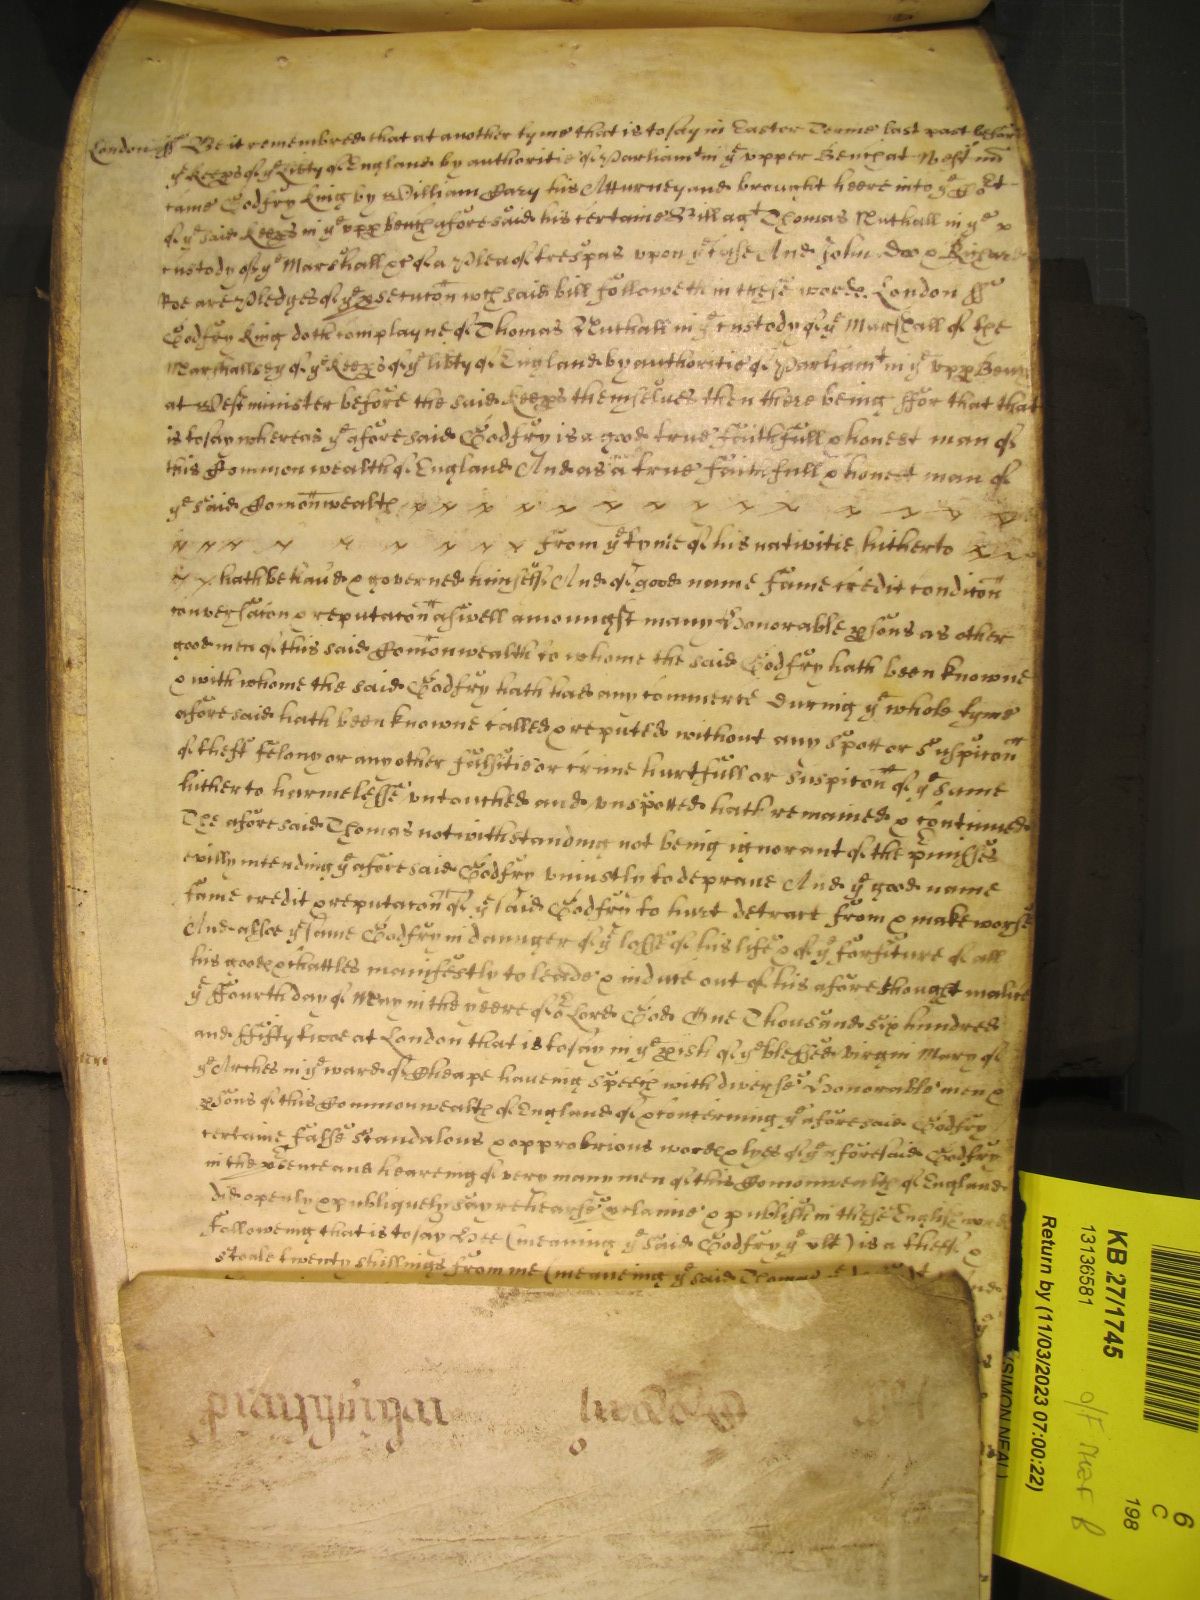 London ss Be it remembred that at another tyme that is to say in Easter Terme last past before
ye Keeps of ye Libty of England by authoritie of Parliamt in ye upper Bench at Westmr
came Godfry King by William Gary his Atturney and brought heere into ye Cort
of ye said Keeps in ye upp bench aforesaid his certaine Bill agt Thomas Nuthall in ye
custody of ye Marshall &c of a Plea of trespas upon ye Case And John Doo & Richard
Roe are Pledges of ye psecucon wch said bill followeth in these words London ss
Godfry King doth complayne of Thomas Nuthall in ye custody of ye Marshall of the
Marshallsey of ye Keeps of ye libty of England by authoritie of Parliamt in ye upp Bench
at Westminister before the said Keeps themselves then there being ffor that that
is to say whereas ye aforesaid Godfry is a good true faithfull & honest man of
this Common wealth of England And as a true faithfull & honest man of
ye said Comonwealth
from ye tyme of his nativitie hitherto
hath behaud & governed himselfe And of good name fame credit condicon
conversacon & reputacon aswell amoungst many Honorable psons as other
good men of this said Comonwealth to whome the said Godfry hath been knowne
& with whome the said Godfry hath had any commerce during ye whole tyme
aforesaid hath been knowne called & reputed without any spott or suspicon
of theft felony or any other falsitie or crime hurtfull or suspicon of ye same
hitherto harmelesse untouched and unspotted hath remained & continued
The aforesaid Thomas notwithstanding not being ignorant of the pmisses
evilly intending ye aforesaid Godfry uniustly to deprave And ye good name
fame credit & reputacon of ye said Godfry to hurt detract from & make worse
And alsoe ye same Godfry in daunger of ye losse of his life & of ye forfiture of all
his goods & chattles manifestly to leade & induce out of his aforethought malice
ye ffourth day of May in the yeere of or Lord God One Thousand six hundred
and ffifty twoe at London that is to say in ye pish of ye blessed virgin Mary of
ye Arches in ye ward of Cheape haveing speech with diverse Honorable men &
psons of this Commonwealth of England of & concerning ye aforesaid Godfry
certaine false scandalous & opprobrious words & lyes of ye aforesaid Godfry
in the psence and heareing of very many men of this Comonwealth of England
did openly & publiquely say rehearse pclaime & publish in these English words
followeing that is to say Hee (meaning ye said Godfry ye plt) is a theefe &
stoale twenty shillings from me (meaneing ye said Thomas
KB 27/1745
13136581
Return by (11/03/2023 07:00:22)
(SIMON NEAL)
6
C
198